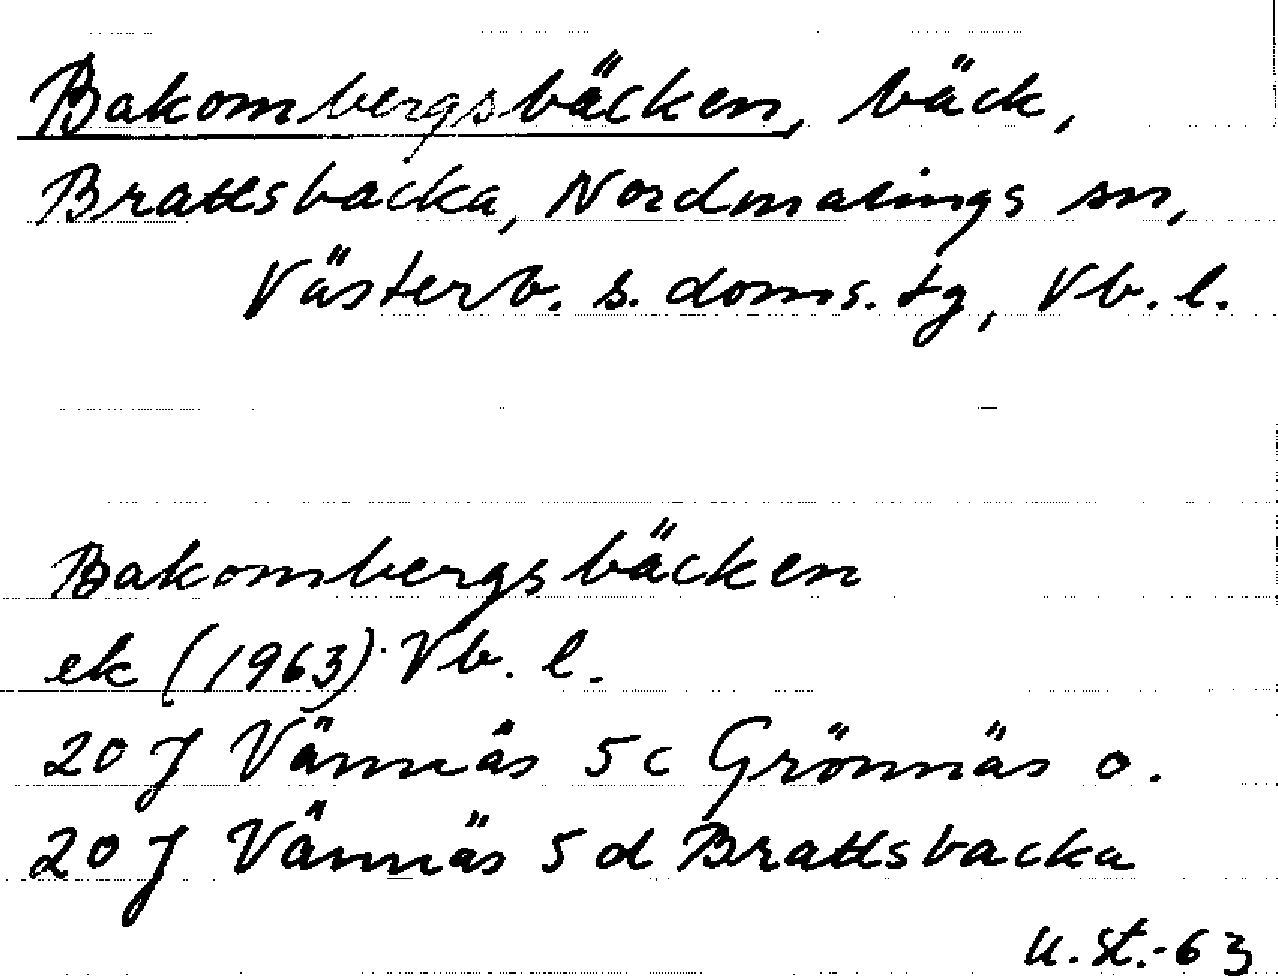 Bakombergsbäcken, bäck,
Brattsbacka, Nordmalings sn,
Västerb. s. doms. tg, Vb. l.
Bakombergsbäcken
ek (1963) Vb. l.
20 J Vännäs 5 c Grönnäs o.
20 J Vännäs 5 d Brattsbacka
U. St. -63